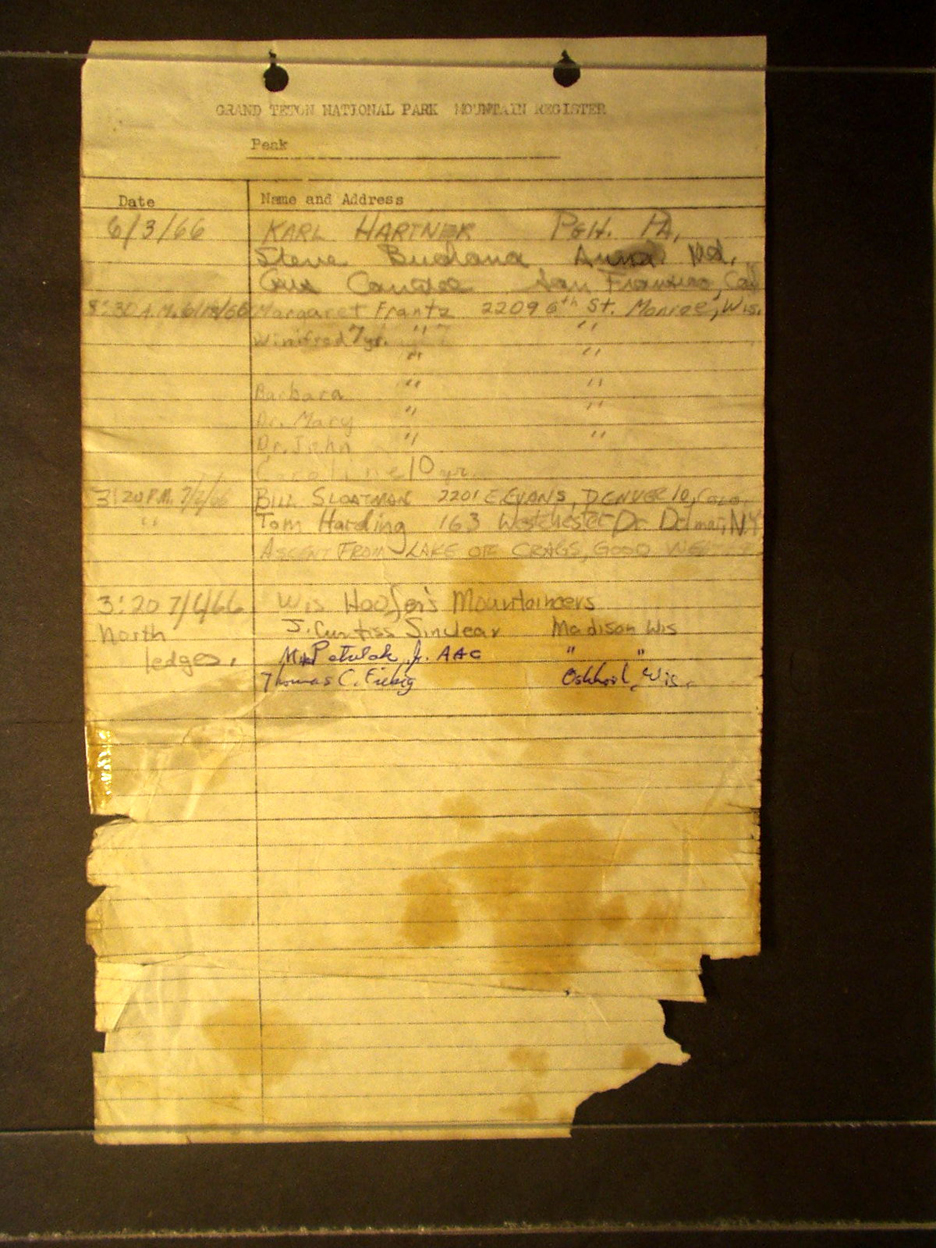 GRAND TETON NATIONAL PARK MOUNTAIN REGISTER
Peak
Date Name and Address
6/3/66 KARL HARTNER PGH. PA.
Steve Md.
San Francisco, Cal
8:30 A.M. Margaret Frantz 2209 6th St. Monroe, Wis.
Winifred 7 yr. " "
" "
Barbara " "
Dr. Mary " "
Dr. John " "
Caroline 10 yr.
3:20 P.M. BILL SLOATMAN 2201 E EVANS, DENVER 10, COLO.
" Tom Harding 163 Westchester Dr. Delmar, N.Y.
ASCENT FROM LAKE OF CRAGS, GOOD
3:20 Wis Hoofer's Mountaineers
North J. Curtiss Sinclear Madison Wis
ledges. Jr. AAC " "
Thomas C. Fiebig Wis.